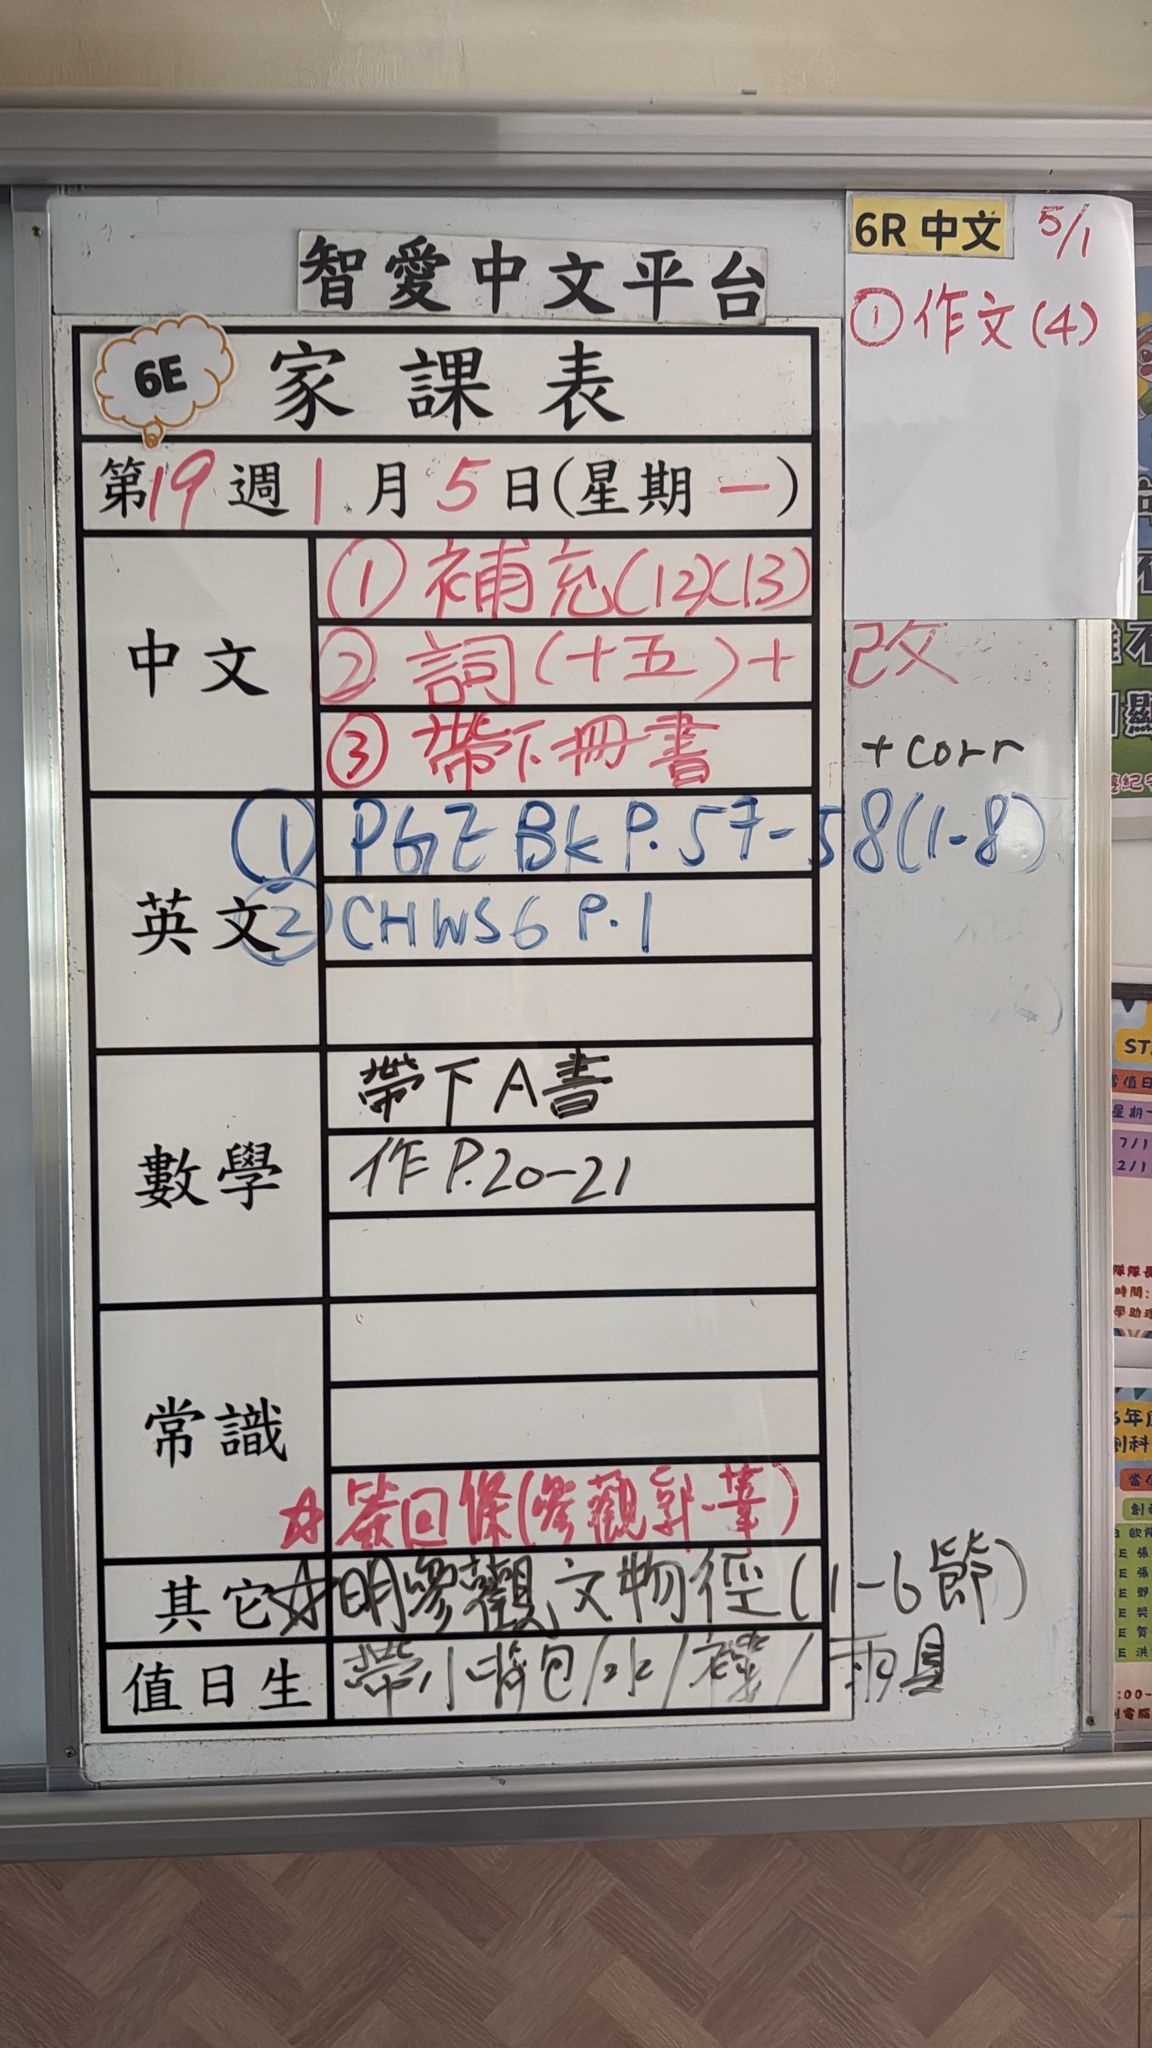 智愛中文平台
6R 中文 5/1
①作文(4)
6E 家課表
第19週1月5日(星期一)
中文
①補充(12)(13)
②詞(十五)+改
③帶下冊書
+corr
英文
①PGE BK P.57-58(1-8)
②CHWS6 P.1
數學
帶下A書
作P.20-21
常識
☆簽回條(參觀
其它
☆明參觀文物徑(1-6節)
值日生
帶小背包/水/襪/雨具